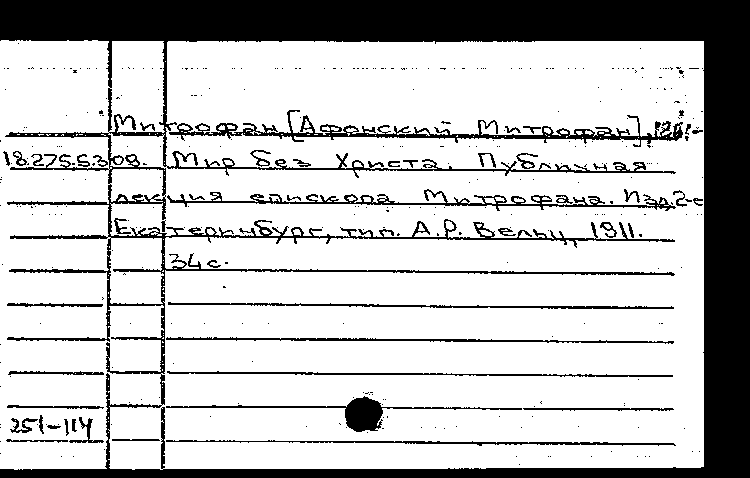 Митрофан, [Афонский, Митрофан], 1861-
18.275.5.308. Мир без Христа. Публичная
лекция епископа Митрофана. Изд. 2-е
Екатеринбург, тип. А.Р. Вельц, 1911.
34 с.
251-114